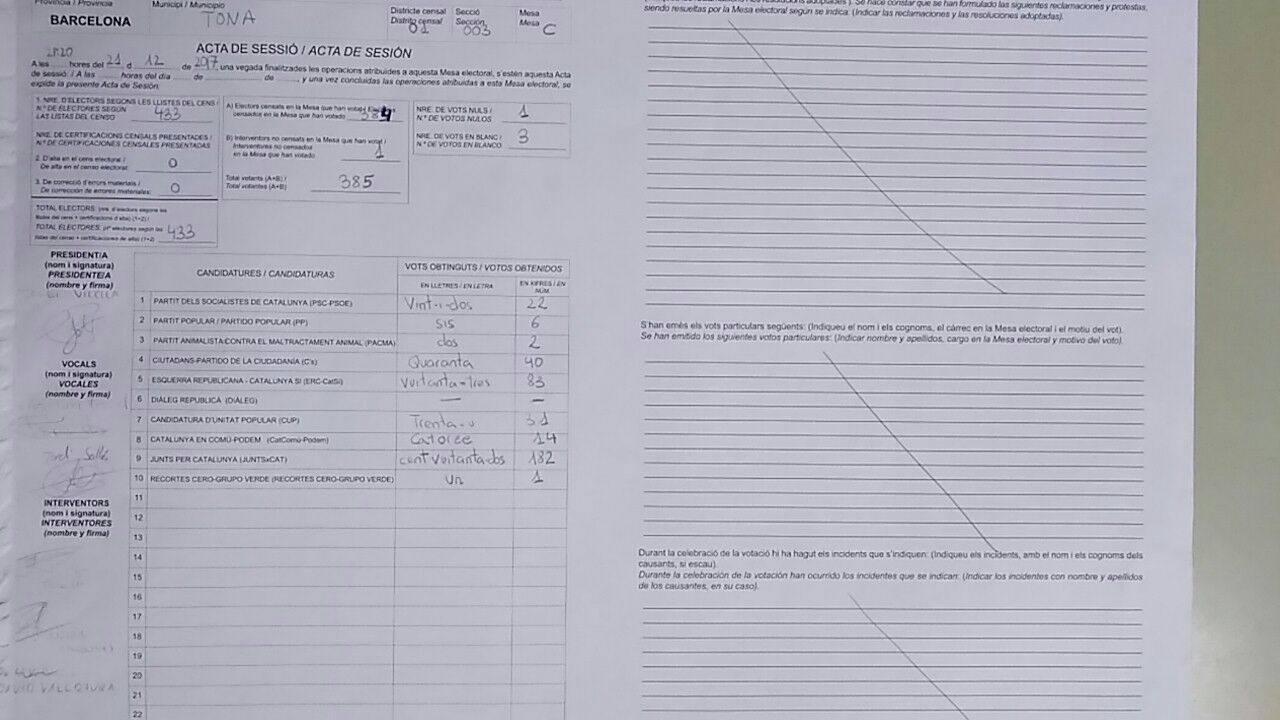 Província / Provincia
BARCELONA
Municipi / Municipio
TONA
Districte censal
Distrito censal
01
Secció
Sección
003
Mesa
Mesa
C
ACTA DE SESSIÓ / ACTA DE SESIÓN
A les hores del 21 d 12 de 2017, una vegada finalitzades les operacions atribuïdes a aquesta Mesa electoral, s'estén aquesta Acta
de sessió. / A las ........ horas del día ...... de ............ de ......, y una vez concluidas las operaciones atribuidas a esta Mesa electoral, se
expide la presente Acta de Sesión:
1. NRE. D'ELECTORS SEGONS LES LLISTES DEL CENS /
N.º DE ELECTORES SEGÚN
LAS LISTAS DEL CENSO 433
NRE. DE CERTIFICACIONS CENSALS PRESENTADES /
N.º DE CERTIFICACIONES CENSALES PRESENTADAS
2. D'alta en el cens electoral /
De alta en el censo electoral: 0
3. De correcció d'errors materials /
De corrección de errores materiales: 0
TOTAL ELECTORS: (nre. d'electors segons les
llistes del cens + certificacions d'alta) (1+2) /
TOTAL ELECTORES: (nº electores según las
listas del censo + certificaciones de alta) (1+2) 433
A) Electors censats en la Mesa que han votat / Electores
censados en la Mesa que han votado 384
B) Interventors no censats en la Mesa que han votat /
Interventores no censados
en la Mesa que han votado 1
Total votants (A+B) /
Total votantes (A+B) 385
NRE. DE VOTS NULS /
N.º DE VOTOS NULOS 1
NRE. DE VOTS EN BLANC /
N.º DE VOTOS EN BLANCO 3
PRESIDENT/A
(nom i signatura)
PRESIDENTE/A
(nombre y firma)
VOCALS
(nom i signatura)
VOCALES
(nombre y firma)
INTERVENTORS
(nom i signatura)
INTERVENTORES
(nombre y firma)
DAVID
CANDIDATURES / CANDIDATURAS
VOTS OBTINGUTS / VOTOS OBTENIDOS
EN LLETRES / EN LETRA
EN XIFRES / EN
NÚM.
1 PARTIT DELS SOCIALISTES DE CATALUNYA (PSC-PSOE) Vint-i-dos 22
2 PARTIT POPULAR / PARTIDO POPULAR (PP) sis 6
3 PARTIT ANIMALISTA CONTRA EL MALTRACTAMENT ANIMAL (PACMA) dos 2
4 CIUTADANS-PARTIDO DE LA CIUDADANÍA (C's) Quaranta 40
5 ESQUERRA REPUBLICANA - CATALUNYA SÍ (ERC-CatSí) vuitanta-tres 83
6 DIÀLEG REPUBLICÀ (DIÀLEG) — —
7 CANDIDATURA D'UNITAT POPULAR (CUP) Trenta-u 31
8 CATALUNYA EN COMÚ-PODEM (CatComú-Podem) Catorze 14
9 JUNTS PER CATALUNYA (JUNTSxCAT) cent vuitanta dos 182
10 RECORTES CERO-GRUPO VERDE (RECORTES CERO-GRUPO VERDE) un 1
11
12
13
14
15
16
17
18
19
20
21
22
Se hace constar que se han formulado las siguientes reclamaciones y protestas,
siendo resueltas por la Mesa electoral según se indica: (Indicar las reclamaciones y las resoluciones adoptadas).
S'han emès els vots particulars següents: (Indiqueu el nom i els cognoms, el càrrec en la Mesa electoral i el motiu del vot).
Se han emitido los siguientes votos particulares: (Indicar nombre y apellidos, cargo en la Mesa electoral y motivo del voto).
Durant la celebració de la votació hi ha hagut els incidents que s'indiquen: (Indiqueu els incidents, amb el nom i els cognoms dels
causants, si escau).
Durante la celebración de la votación han ocurrido los incidentes que se indican: (Indicar los incidentes con nombre y apellidos
de los causantes, en su caso).